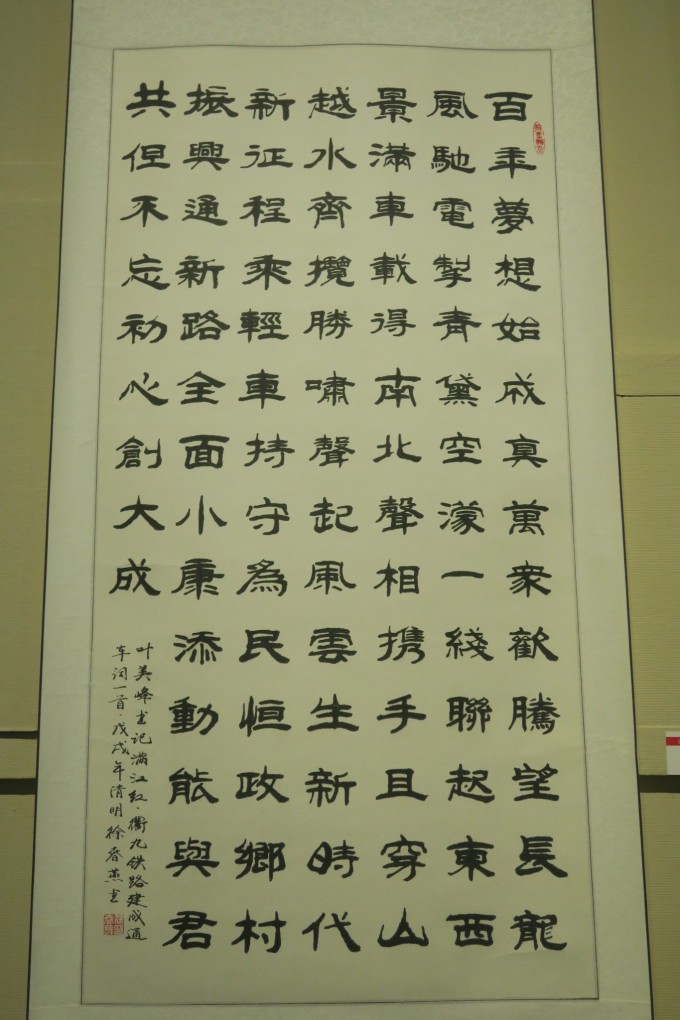 百年夢想始成真萬衆歡騰望長龍
風馳電掣青黛空濛一綫聯起東西
景滿車載得南北聲相携手且穿山
越水齊攬勝嘯聲起風雲生新時代
新征程乘輕車持守為民恒政鄉村
振興通新路全面小康添動能與君
共但不忘初心創大成
叶美峰书记满江红·衢九铁路建成通
车词一首·戊戌年清明徐春燕书